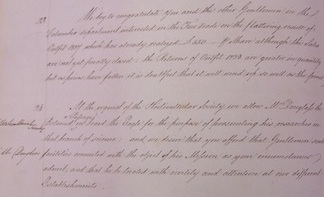 23 We beg to congratulate you and the other Gentlemen in the
Columbia department interested in the Fur trade on the flattering
Outfit 1827 which has already realized £ share although the Sales
are not yet finally closed - the Returns of Outfit 1828 are greater in quantity
but as prices have fallen it is doubtful that it will end up so well as the former
24 At the request of the Horticultural Society, we allow Mr Douglas
Horticultural Society to the for the purpose of prosecuting his researches in
that branch of science; and, we desire that you afford that Gentleman
Mr Douglas facilities connected with the object of his Mission as your circumstances
admit, and that he be treated with civility and attention at our different
Establishments.